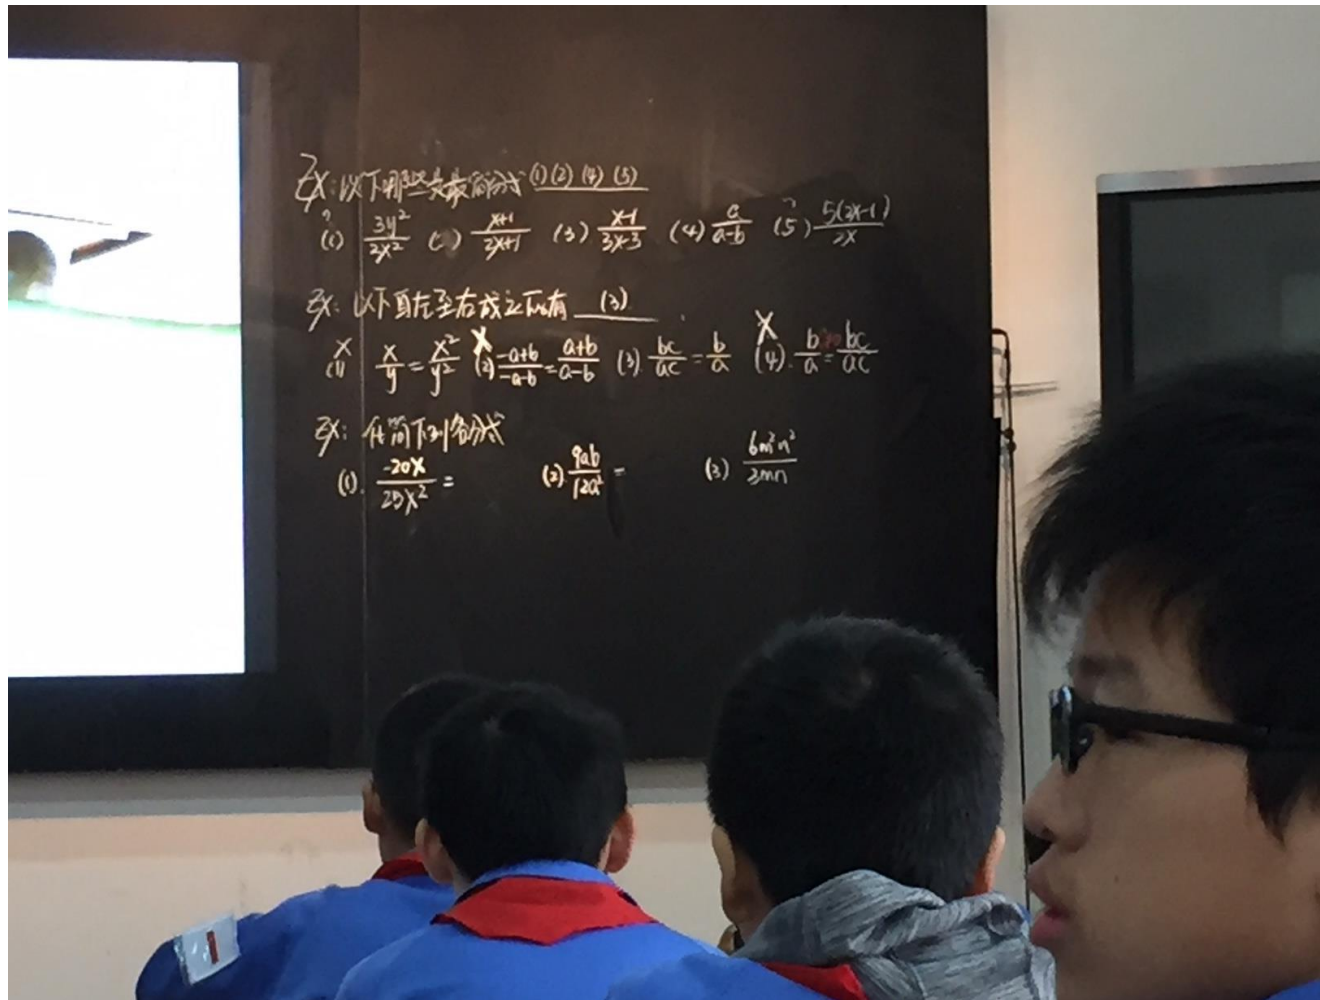 Ex: 以下哪些是最简分式 (1) (2) (4) (5)
? ?
(1) 3y²/2x² ( ) x+1/2x+1 (3) x-1/3x-3 (4) c/a-b (5) 5(2x-1)/2x
Ex: 以下自左至右成立的有 (3)
X X X
(1) x/y = x²/y² (2) -a+b/-a-b = a+b/a-b (3). bc/ac = b/a (4). b/a = bc/ac
Ex: 化简下列各分式
(1). -20x/25x² = (2). 9ab/12a² = (3) 6m²n²/3mn